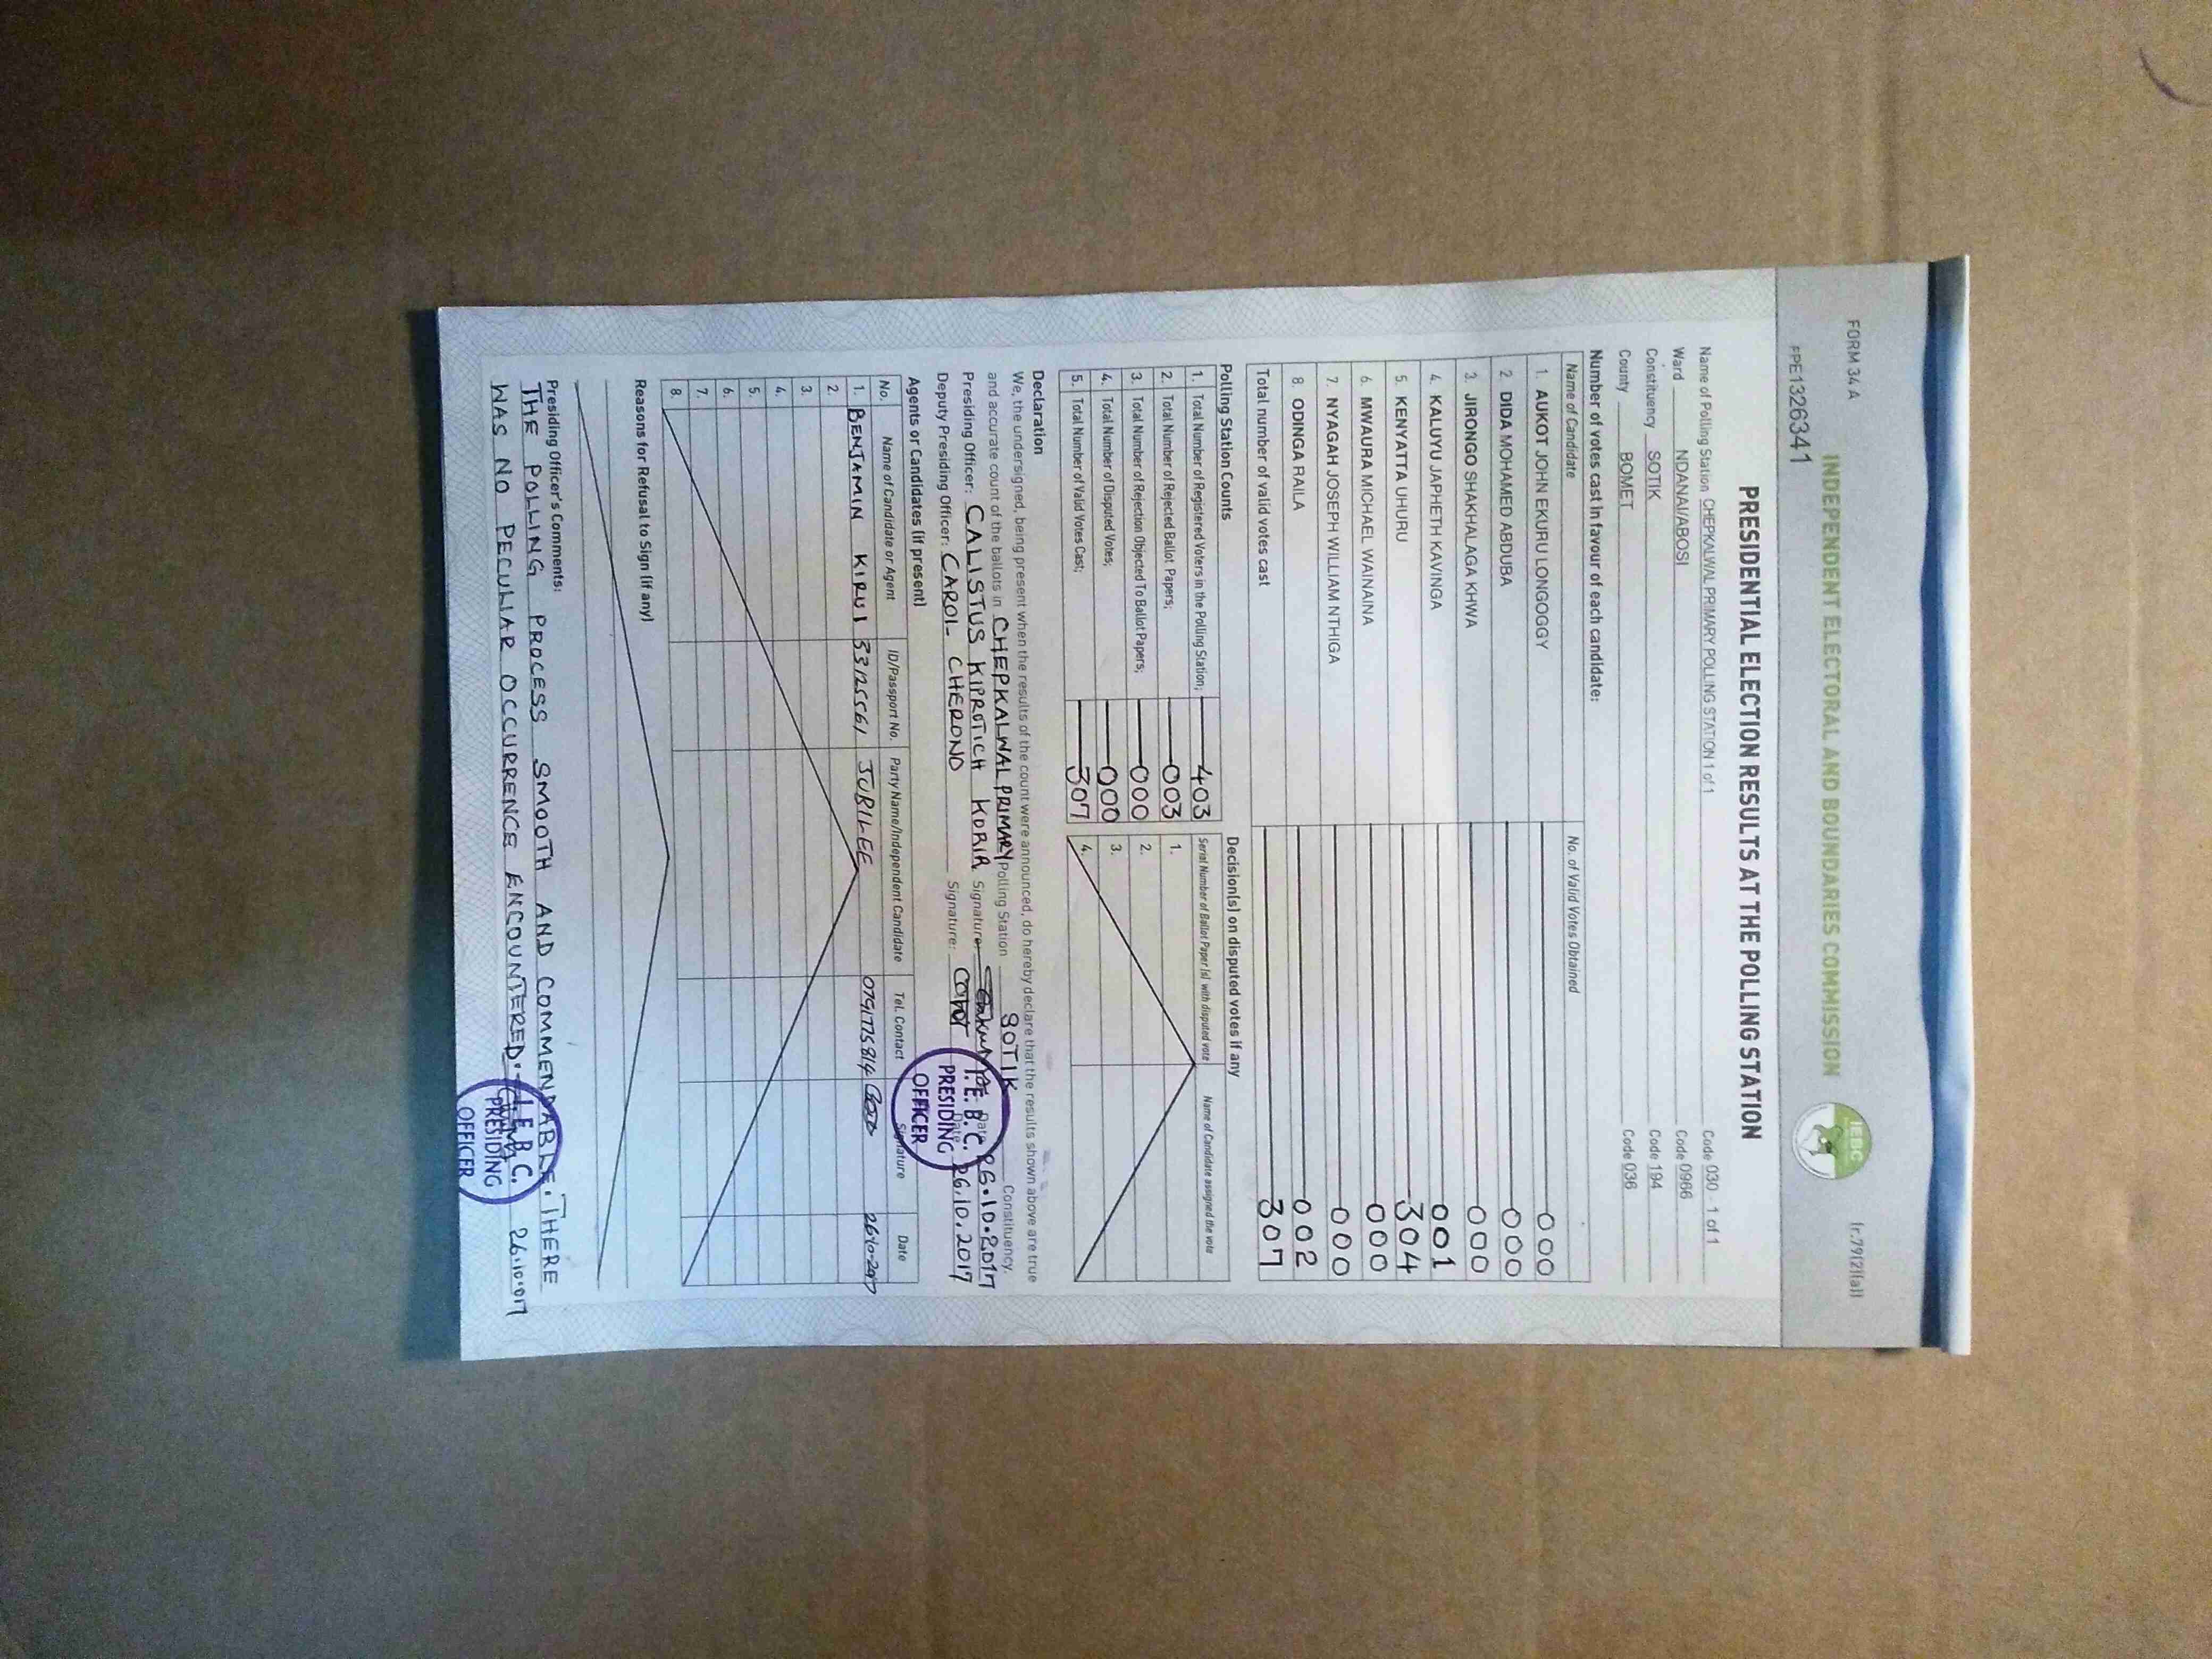 FORM 34 A (r.79(2)(a))
INDEPENDENT ELECTORAL AND BOUNDARIES COMMISSION
IEBC
FPE1326341
PRESIDENTIAL ELECTION RESULTS AT THE POLLING STATION
Name of Polling Station CHEPKALWAL PRIMARY POLLING STATION 1 of 1 Code 030 - 1 of 1
Ward NDANAI/ABOSI Code 0966
Constituency SOTIK Code 194
County BOMET Code 036
Number of votes cast in favour of each candidate:
Name of Candidate No. of Valid Votes Obtained
1. AUKOT JOHN EKURU LONGOGGY 000
2. DIDA MOHAMED ABDUBA 000
3. JIRONGO SHAKHALAGA KHWA 000
4. KALUYU JAPHETH KAVINGA 001
5. KENYATTA UHURU 304
6. MWAURA MICHAEL WAINAINA 000
7. NYAGAH JOSEPH WILLIAM NTHIGA 000
8. ODINGA RAILA 002
Total number of valid votes cast 307
Polling Station Counts
1. Total Number of Registered Voters in the Polling Station; 403
2. Total Number of Rejected Ballot Papers; 003
3. Total Number of Rejection Objected To Ballot Papers; 000
4. Total Number of Disputed Votes; 000
5. Total Number of Valid Votes Cast; 307
Decision(s) on disputed votes if any
Serial Number of Ballot Paper (s) with disputed vote Name of Candidate assigned the vote
1.
2.
3.
4.
Declaration
We, the undersigned, being present when the results of the count were announced, do hereby declare that the results shown above are true
and accurate count of the ballots in CHEPKALWAL PRIMARY Polling Station SOTIK Constituency.
Presiding Officer: CALISTUS KIPROTICH KORIR Signature Date 26.10.2017
Deputy Presiding Officer: CAROL CHERONO Signature: Date 26.10.2017
I.E.B.C.
PRESIDING
OFFICER
Agents or Candidates (if present)
No. Name of Candidate or Agent ID/Passport No. Party Name/Independent Candidate Tel. Contact Signature Date
1. BENJAMIN KIRUI 33125561 JUBILEE 0791775814
2.
3.
4.
5.
6.
7.
8.
Reasons for Refusal to Sign (if any)
Presiding Officer's Comments:
THE POLLING PROCESS SMOOTH AND COMMENDABLE. THERE
WAS NO PECULIAR OCCURRENCE ENCOUNTERED. 26.10.017
I.E.B.C.
PRESIDING
OFFICER